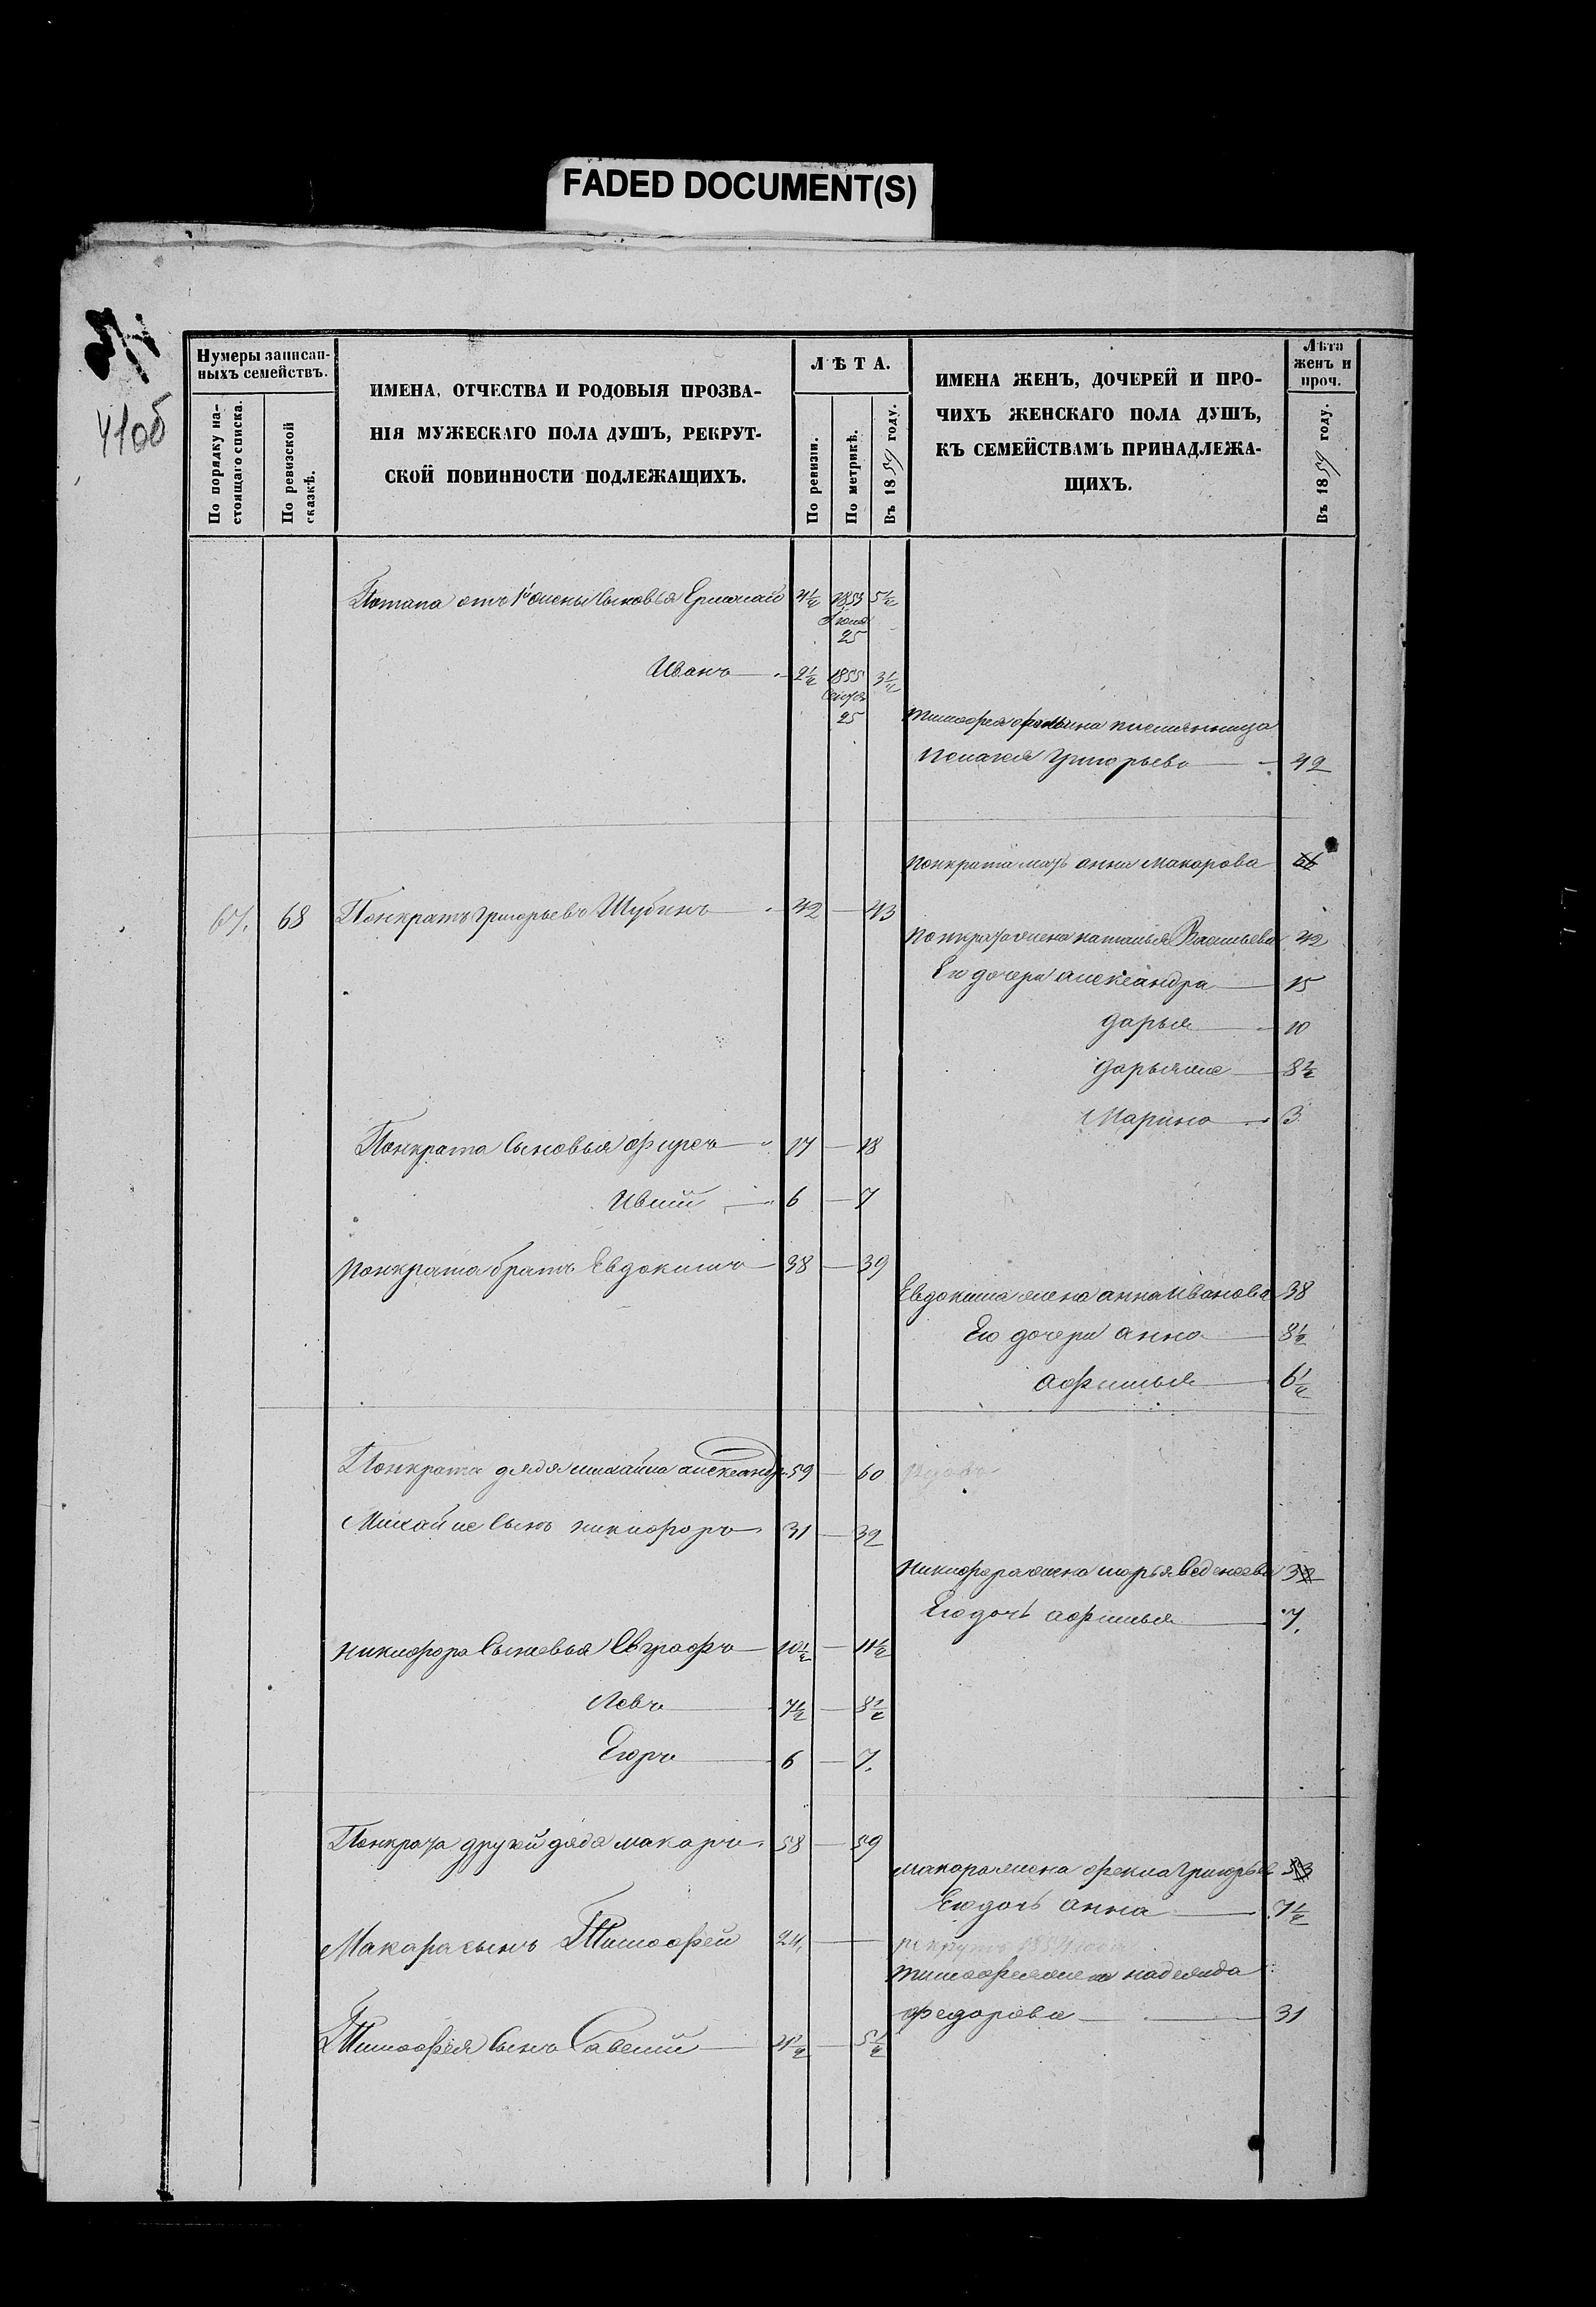 FADED DOCUMENT(S)
41об
Нумеры записан-
ныхъ семействъ.
По порядку на-
стоящаго списка.
По ревизской
сказкѣ.
ИМЕНА, ОТЧЕСТВА И РОДОВЫЯ ПРОЗВА-
НІЯ МУЖЕСКАГО ПОЛА ДУШЪ, РЕКРУТ-
СКОЙ ПОВИННОСТИ ПОДЛЕЖАЩИХЪ.
ЛѢТА.
По ревизіи.
По метрикѣ.
Въ 1859 году.
ИМЕНА ЖЕНЪ, ДОЧЕРЕЙ И ПРО-
ЧИХЪ ЖЕНСКАГО ПОЛА ДУШЪ,
КЪ СЕМЕЙСТВАМЪ ПРИНАДЛЕЖА-
ЩИХЪ.
Лѣта
женъ и
проч.
Въ 1859 году.
Потапа отъ 1й жены сыновья Ермолай 4½ 1853 5½
Іюня
25
Иванъ 2½ 1855 3½
25
племянница
Пелагея Григорьева 42
Понкрата мать анна макарова 66
67. 68 Понкратъ Григорьевъ Шубинъ 42 43
Понкрата жена наталья Васильева 42
Его дочери александра 15
дарья 10
дарья же 8½
Марина 3
Понкрата сыновья фирсъ 17 18
Ивлий 6 7
Понкрата братъ Евдокимъ 38 39
Евдокима жена анна Иванова 38
Его дочери анна 8½
афимья 6½
Понкрата дядя михайла александр 59 60 вдовъ
Михайле сынъ никифоръ 31 32
Никифора жена марья 32
Его дочь афимья 7.
никифора сыновья Евграфъ 10½ 11½
Левъ 7½ 8½
Егоръ 6 7.
Понкрата другой дядя макаръ 58 59
макара жена фекла Григорьев 53
Его дочь анна 7½
Макара сынъ Тимофей 24, рекрутъ 1854 года
тимофея жена надежда
федорова 31
Тимофея сынъ Савелий 4½ 5½